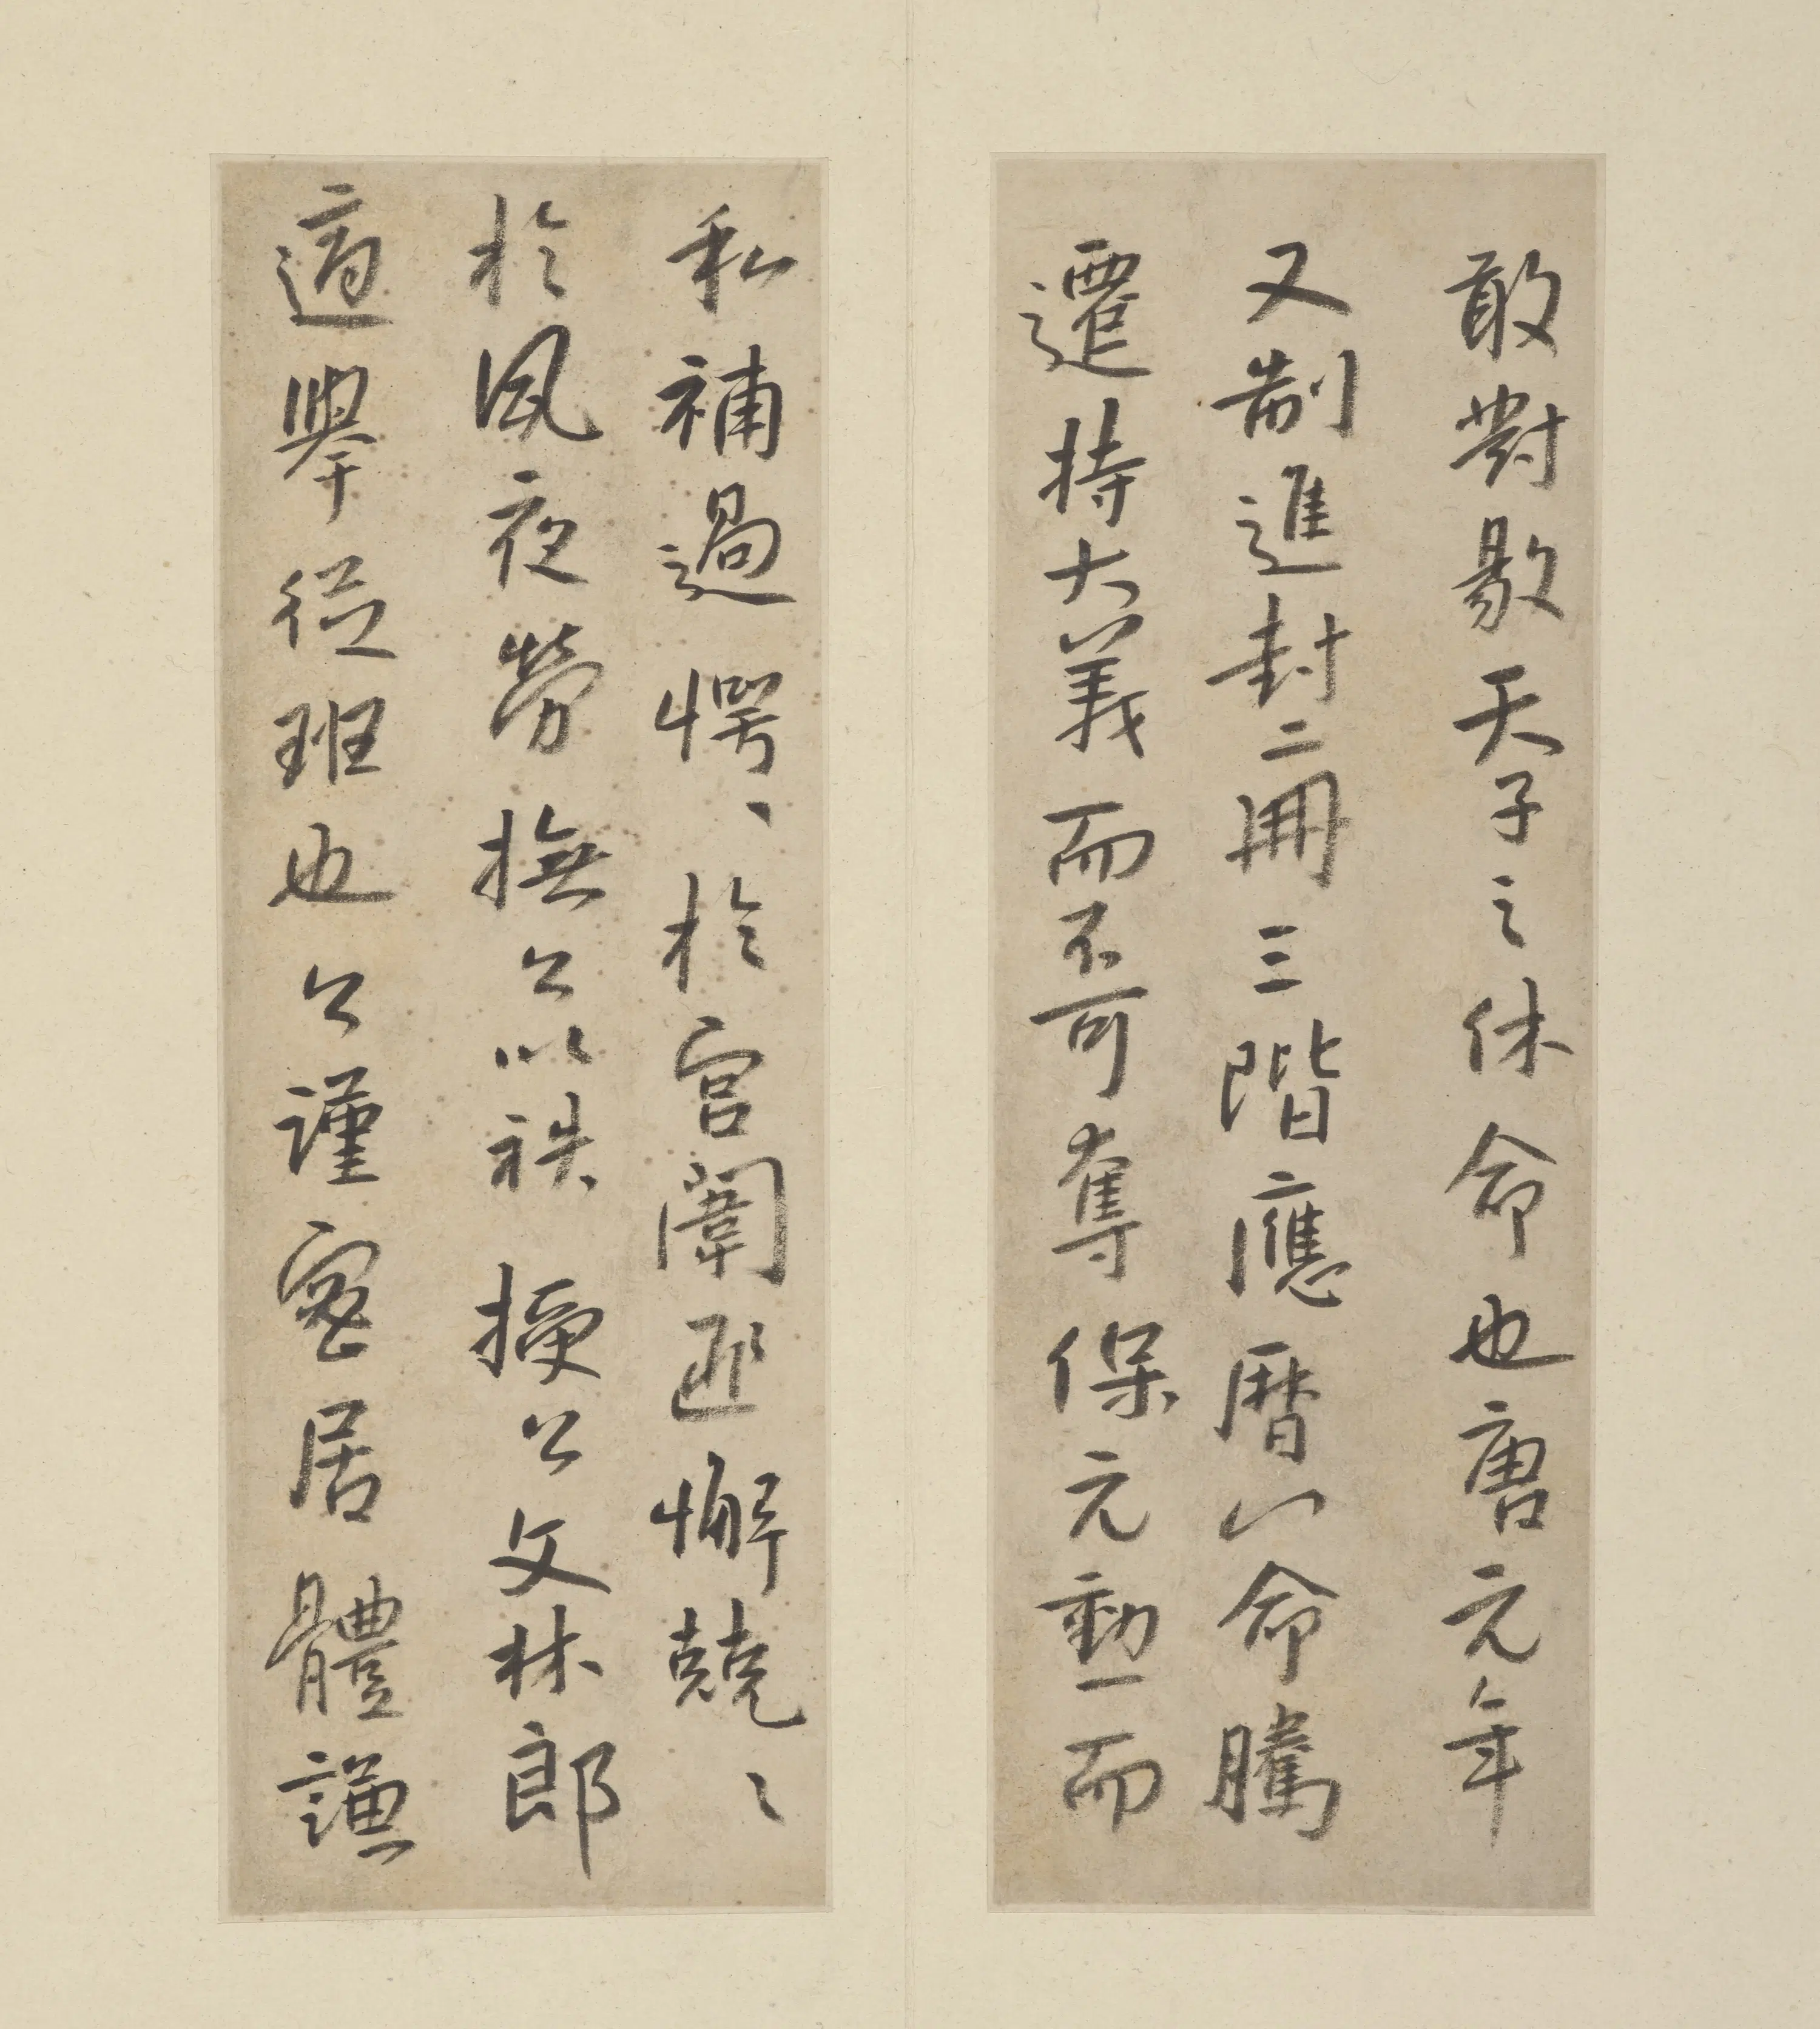 敢對敭天子之休命也唐元年
又制進封二冊三階應曆以命騰
遷持大義而不可奪保元勳而
私補過愕〻於宮闈匪懈兢〻
於夙夜勞撫公以袟授公文林郎
適舉從班也公謹密居體謙